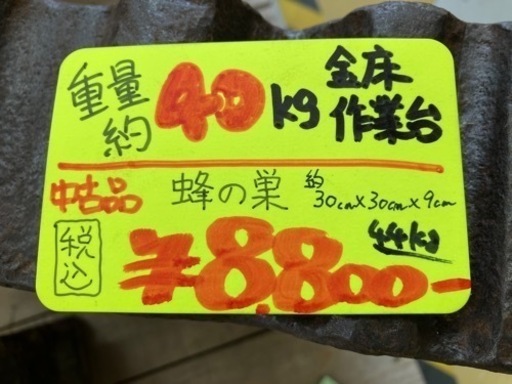 重量
約 40kg 金床
作業台
中古品 蜂の巣 約
30cm×30cm×9cm
44kg
税込 ¥8.800-